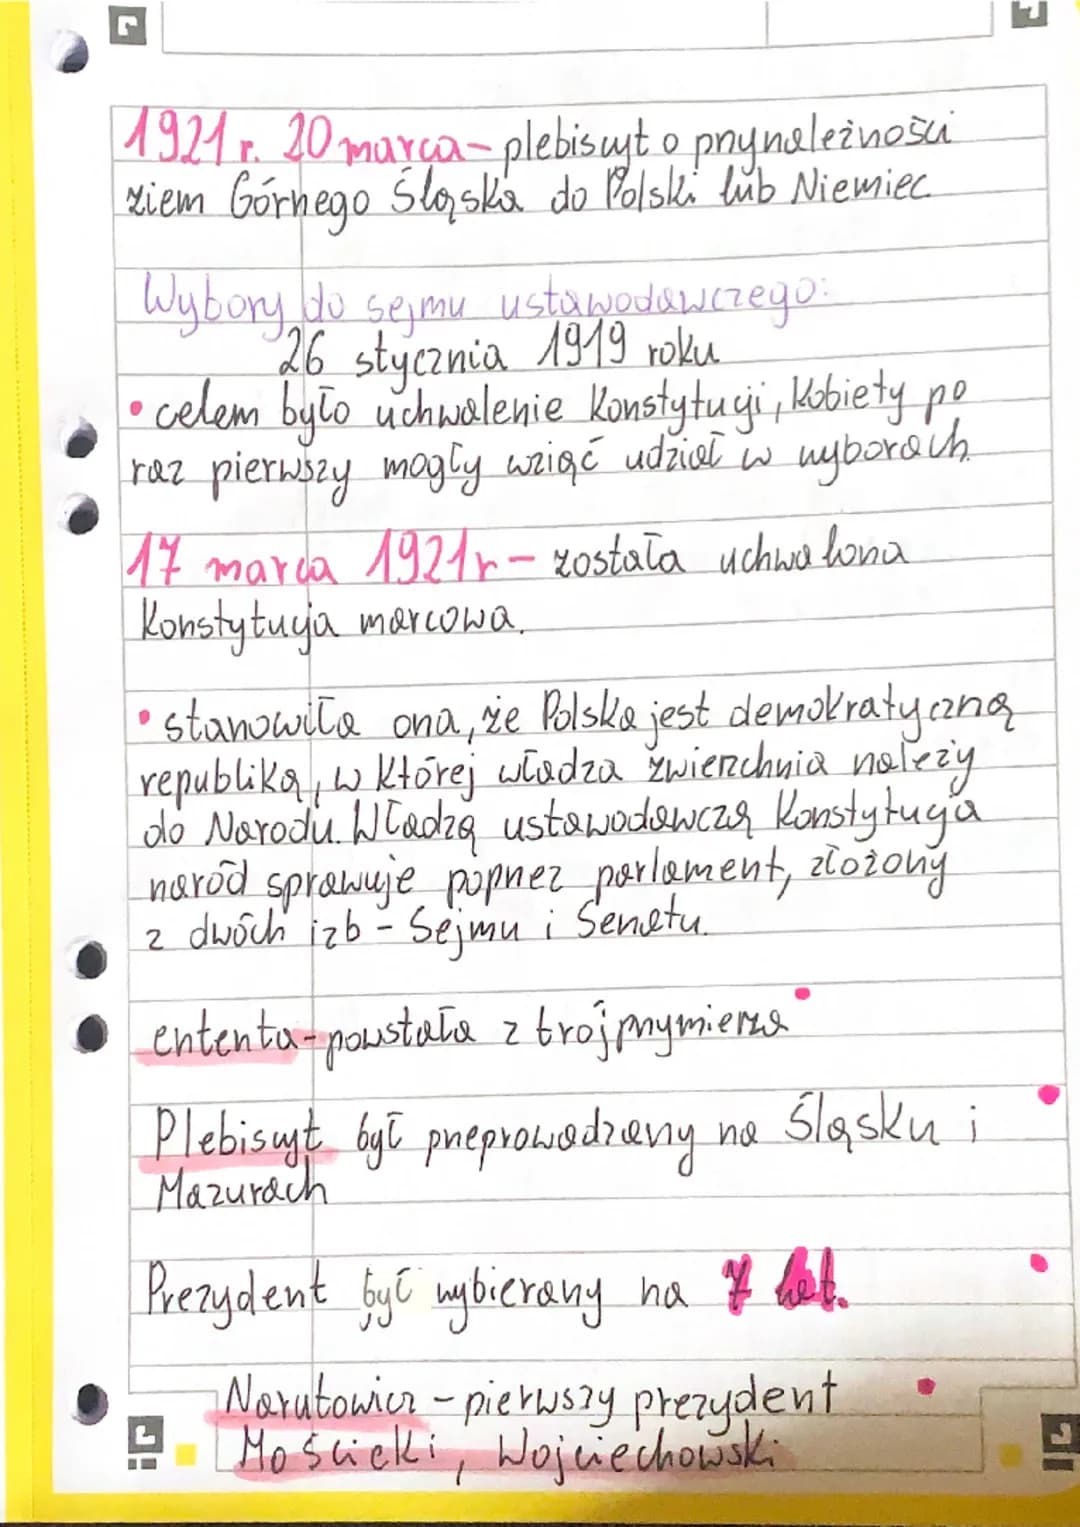 1921 r. 20 marca - plebiscyt o przynależności
ziem Górnego Śląska do Polski lub Niemiec
Wybory do sejmu ustawodawczego:
26 stycznia 1919 roku
• celem było uchwalenie Konstytucji, kobiety po
raz pierwszy mogły wziąć udział w wyborach.
17 marca 1921r - została uchwalona
Konstytucja marcowa.
• stanowiła ona, że Polska jest demokratyczną
republiką, w której władza zwierzchnia należy
do Narodu. Władzą ustawodawczą Konstytucja
naród sprawuje poprzez parlament, złożony
z dwóch izb - Sejmu i Senatu.
ententa - powstała z trójprzymierza
Plebiscyt był przeprowadzany na Śląsku i
Mazurach
Prezydent był wybierany na 7 lat.
Narutowicz - pierwszy prezydent
Mościcki, Wojciechowski